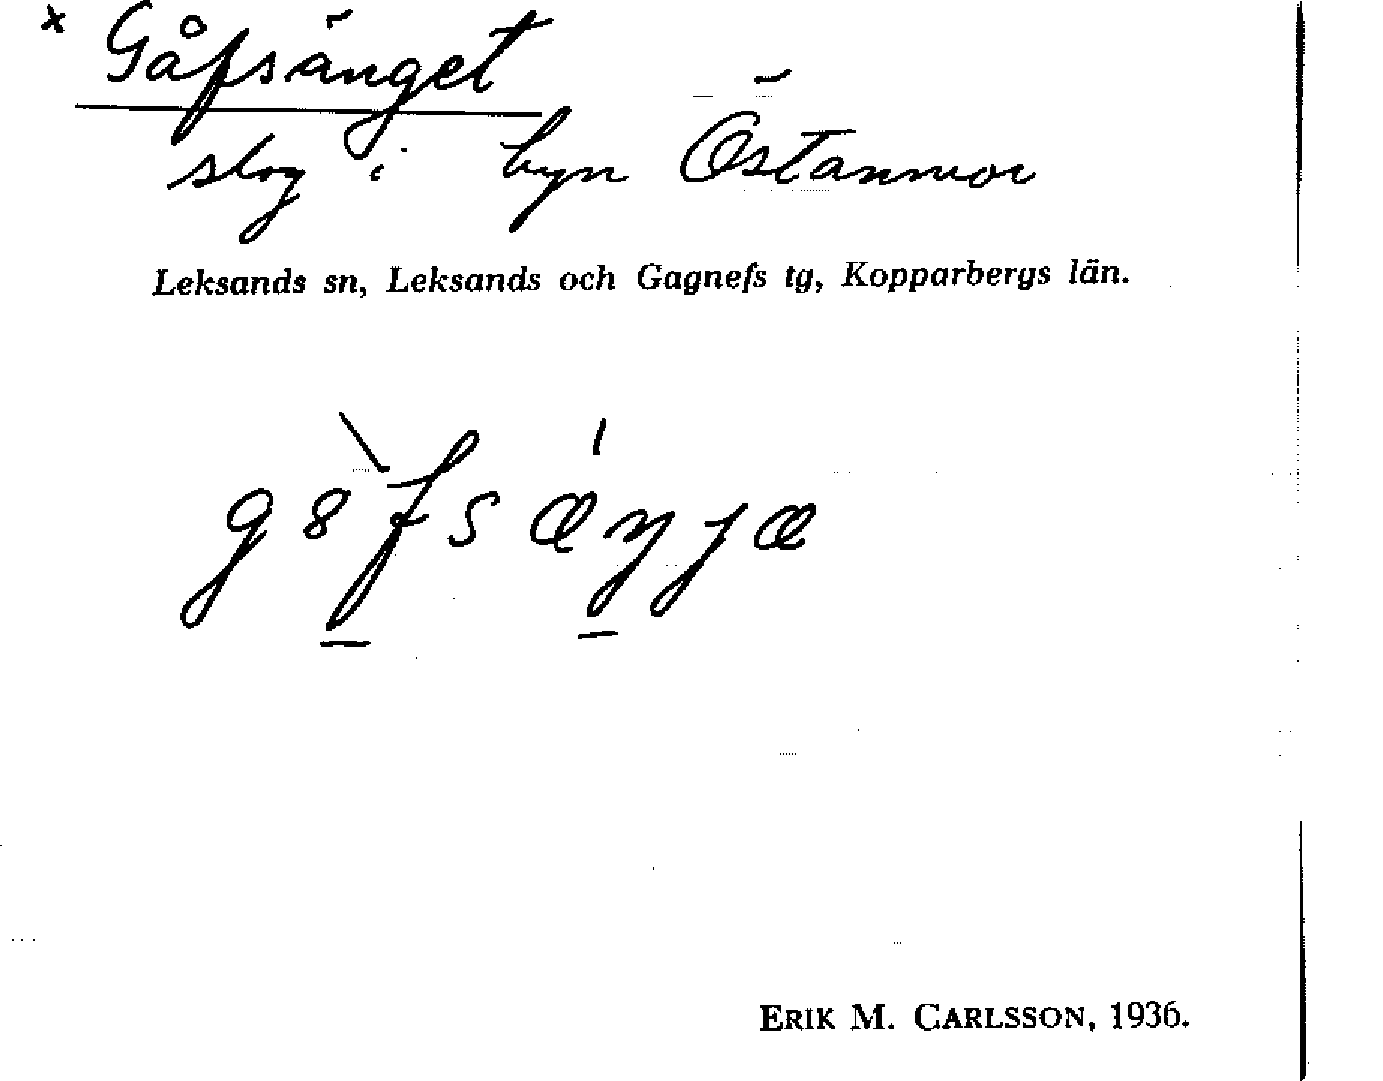 x Gåfsänget
slog i byn Östanmor
Leksands sn, Leksands och Gagnefs tg, Kopparbergs län.
ERIK M. CARLSSON, 1936.